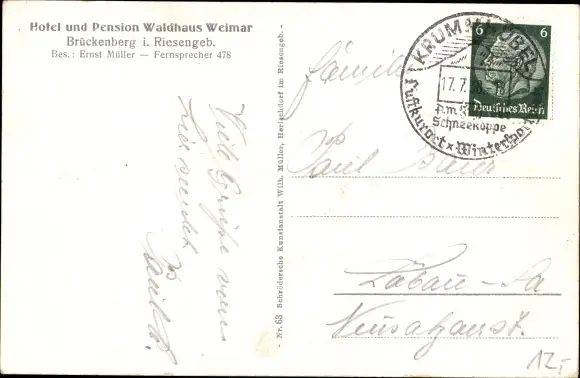 Hotel und Pension Waldhaus Weimar
Brückenberg i. Riesengeb.
Bes.: Ernst Müller — Fernsprecher 478
Viele Grüße vom
hier sendet
- Nr. 63 Schrödersche Kunstanstalt Wilh. Müller, Herischdorf im Riesengeb. -
KRUMMHÜBEL
17.7.
Schneekoppe
Luftkurort x Wintersport
6 6
Deutsches Reich
Familie
Paul
Löbau - Sa
12,-